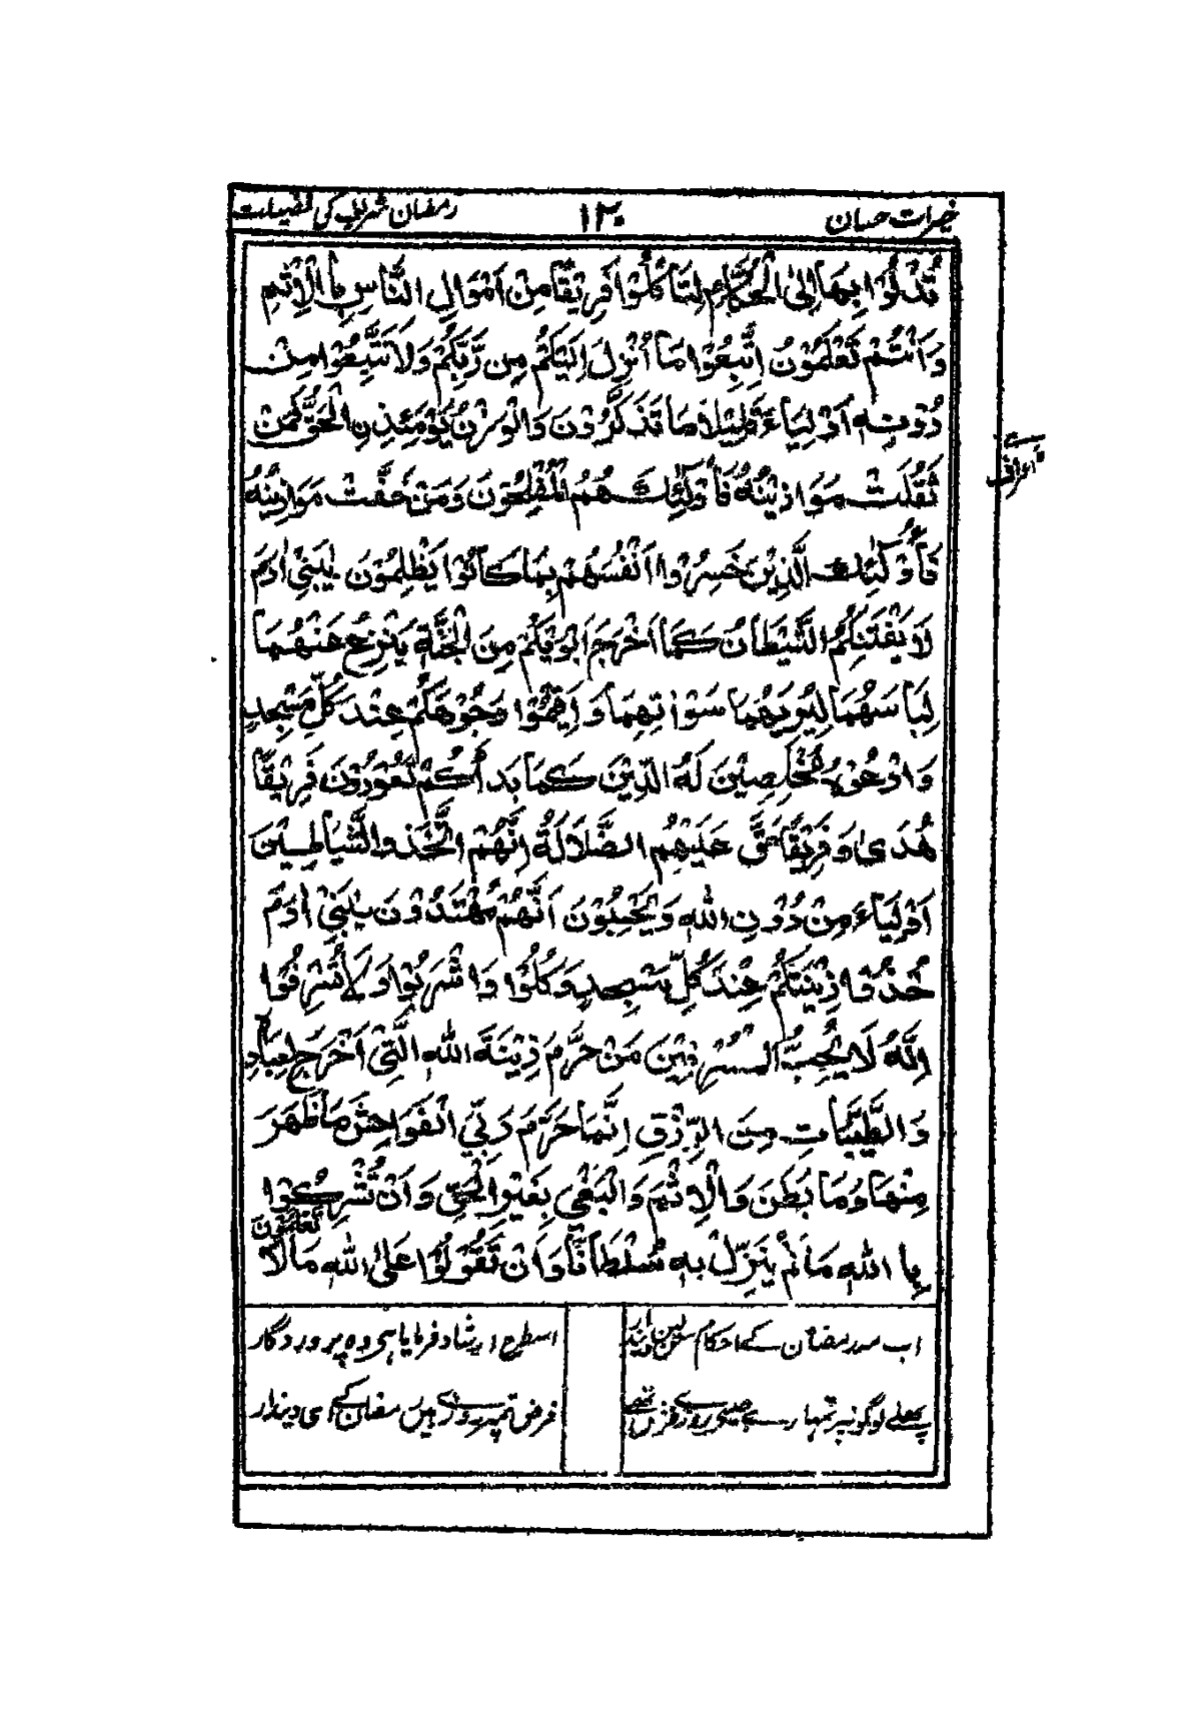 خیرات حسان ۱۳۰ رمضان شریف کی فضیلت
تُدْلُوْا بِهَا اِلَى الْحُكَّامِ لِتَاْكُلُوْا فَرِيْقًا مِنْ اَمْوَالِ النَّاسِ بِالْاِثْمِ
وَاَنْتُمْ تَعْلَمُوْنَ اِتَّبِعُوْا مَا اُنْزِلَ اِلَيْكُمْ مِن رَّبِّكُمْ وَلَا تَتَّبِعُوْا مِنْ
دُوْنِهٖ اَوْلِيَاءَ قَلِيْلًا مَا تَذَكَّرُوْنَ وَالْوَزْنُ يَوْمَئِذِنِ الْحَقُّ فَمَنْ
ثَقُلَتْ مَوَازِيْنُهٗ فَاُولٰٓئِكَ هُمُ الْمُفْلِحُوْنَ وَمَنْ خَفَّتْ مَوَازِيْنُهٗ
فَاُولٰٓئِكَ الَّذِيْنَ خَسِرُوْا اَنْفُسَهُمْ بِمَا كَانُوْا يَظْلِمُوْنَ يٰبَنِيْ اٰدَمَ
لَا يَفْتَنِنَّكُمُ الشَّيْطَانُ كَمَا اَخْرَجَ اَبَوَيْكُمْ مِنَ الْجَنَّةِ يَنْزِعُ عَنْهُمَا
لِبَاسَهُمَا لِيُرِيَهُمَا سَوْاٰتِهِمَا وَاَقِيْمُوْا وُجُوْهَكُمْ عِنْدَ كُلِّ مَسْجِدٍ
وَادْعُوْهُ مُخْلِصِيْنَ لَهُ الدِّيْنَ كَمَا بَدَاَكُمْ تَعُوْدُوْنَ فَرِيْقًا
هُدَىٰ وَفَرِيْقًا حَقَّ عَلَيْهِمُ الضَّلَالَةُ اِنَّهُمْ اتَّخَذُوا الشَّيَاطِيْنَ
اَوْلِيَاءَ مِنْ دُوْنِ اللهِ وَيَحْسَبُوْنَ اَنَّهُمْ مُهْتَدُوْنَ يٰبَنِيْ اٰدَمَ
خُذُوْا زِيْنَتَكُمْ عِنْدَ كُلِّ مَسْجِدٍ وَكُلُوْا وَاشْرَبُوْا وَلَا تُسْرِفُوْا
اِنَّهٗ لَا يُحِبُّ الْمُسْرِفِيْنَ مَنْ حَرَّمَ زِيْنَةَ اللهِ الَّتِيْ اَخْرَجَ لِعِبَادِهٖ
وَالطَّيِّبَاتِ مِنَ الرِّزْقِ اِنَّمَا حَرَّمَ رَبِّيَ الْفَوَاحِشَ مَا ظَهَرَ
مِنْهَا وَمَا بَطَنَ وَالْاِثْمَ وَالْبَغْيَ بِغَيْرِ الْحَقِّ وَاَنْ تُشْرِكُوْا
بِاللهِ مَا لَمْ يُنَزِّلْ بِهٖ سُلْطَانًا وَاَنْ تَقُوْلُوْا عَلَى اللهِ مَالَا تَعْلَمُوْنَ
اب رمضان کے احکام سن لیں
اسطرح ارشاد فرمایا ہی وہ پروردگار
پہلے لوگونپر تمہارے جیسی روزے فرض تھے
فرض تمپر روزے ہیں رمضان کے ای دیندار